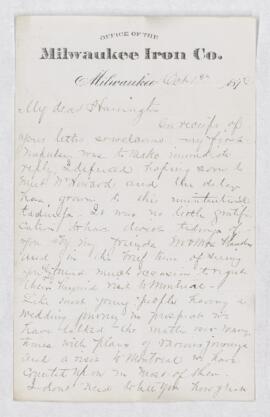 OFFICE OF THE
Milwaukee Iron Co.
Milwaukee Oct 1st 187
My dear Harrington
On receipt of
your letter some days my first
was to make immediate
reply. I deferred hoping soon to
meet Mr Howards and the delay
has grown to this unintentional
It was no little gratifi
cation to have direct tidings of
you by my friends Mr & Mrs
and in the brief time of seeing
you found much occasion to regret
their hurried visit to Montreal
Like most young people having a
wedding journey in prospect we
have talked the matter over many
times with plans of various journeys
and a visit to Montreal we have
counted upon in most of them
I do not need to tell you how great